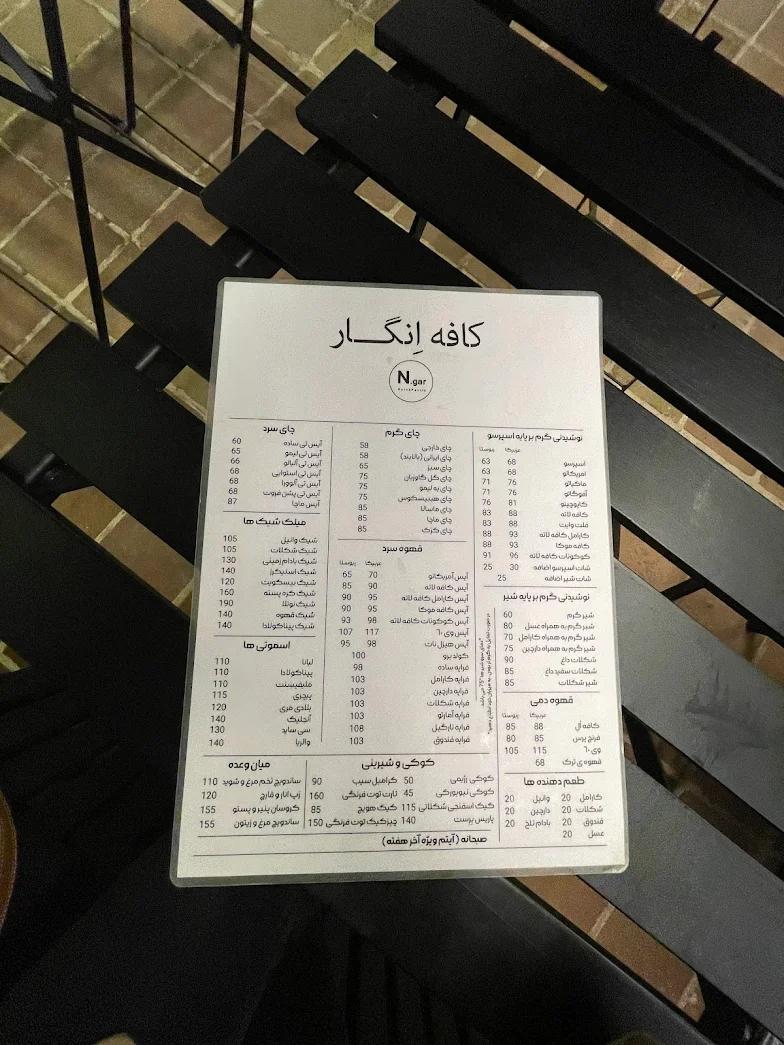 کافه اِنگار
N.gar
نوشیدنی گرم بر پایه اسپرسو
عربیکا روبوستا
اسپرسو 68 63
آمریکانو 68 63
ماکیاتو 76 71
آفوگاتو 76 71
کاپوچینو 81 76
کافه لاته 88 83
فلت وایت 88 83
کارامل کافه لاته 93 88
کافه موکا 93 88
کوکونات کافه لاته 96 91
شات اسپرسو اضافه 30 25
شات شیر اضافه 25
نوشیدنی گرم بر پایه شیر
شیر گرم 60
شیر گرم به همراه عسل 80
شیر گرم به همراه کارامل 70
شیر گرم به همراه دارچین 75
شکلات داغ 90
شکلات سفید داغ 85
شیر شکلات 85
قهوه دمی
عربیکا روبوستا
کافه آل 88 85
فرنچ پرس 85 80
وی ٦٠ 115 105
قهوه ی ترک 68
طعم دهنده ها
کارامل 20 وانیل 20
شکلات 20 دارچین 20
فندوق 20 بادام تلخ 20
عسل 20
چای گرم
چای خارجی 58
چای ایرانی (بالابند) 58
چای سبز 65
چای گل گاوزبان 75
چای به لیمو 75
چای هیبیسکوس 75
چای ماسالا 85
چای ماچا 85
چای کرک 85
قهوه سرد
عربیکا روبوستا
آیس آمریکانو 70 65
آیس کافه لاته 90 85
آیس کارامل کافه لاته 95 90
آیس کافه موکا 95 90
آیس کوکونات کافه لاته 98 93
آیس وی ٦٠ 117 107
آیس هیزل نات 98 95
کولد برو 100
فراپه ساده 98
فراپه کارامل 103
فراپه دارچین 103
فراپه شکلات 103
فراپه آمارتو 103
فراپه نارگیل 108
فراپه فندوق 103
چای سرد
آیس تی ساده 60
آیس تی لیمو 65
آیس تی آلبالو 66
آیس تی استوایی 68
آیس تی آلوورا 68
آیس تی پشن فروت 68
آیس ماچا 87
میلک شیک ها
شیک وانیل 105
شیک شکلات 105
شیک بادام زمینی 130
شیک اسنیکرز 140
شیک بیسکویت 120
شیک کره پسته 160
شیک نوتلا 190
شیک قهوه 140
شیک پیناکولادا 140
اسموتی ها
لیانا 110
پیناکولادا 110
ملیفیسنت 110
پیچری 115
بلادی مری 120
آنجلیک 140
سی ساید 130
والریا 140
کوکی و شیرینی
کوکی رژیمی 50 کرامبل سیب 90
کوکی نیویورکی 45 تارت توت فرنگی 160
کیک اسفنجی شکلاتی 115 کیک هویج 85
پاریس برست 140 چیزکیک توت فرنگی 150
میان وعده
ساندویچ تخم مرغ و شوید 110
رَپ انار و قارچ 120
کروسان پنیر و پستو 155
ساندویچ مرغ و زیتون 155
صبحانه ( آیتم ویژه آخر هفته )